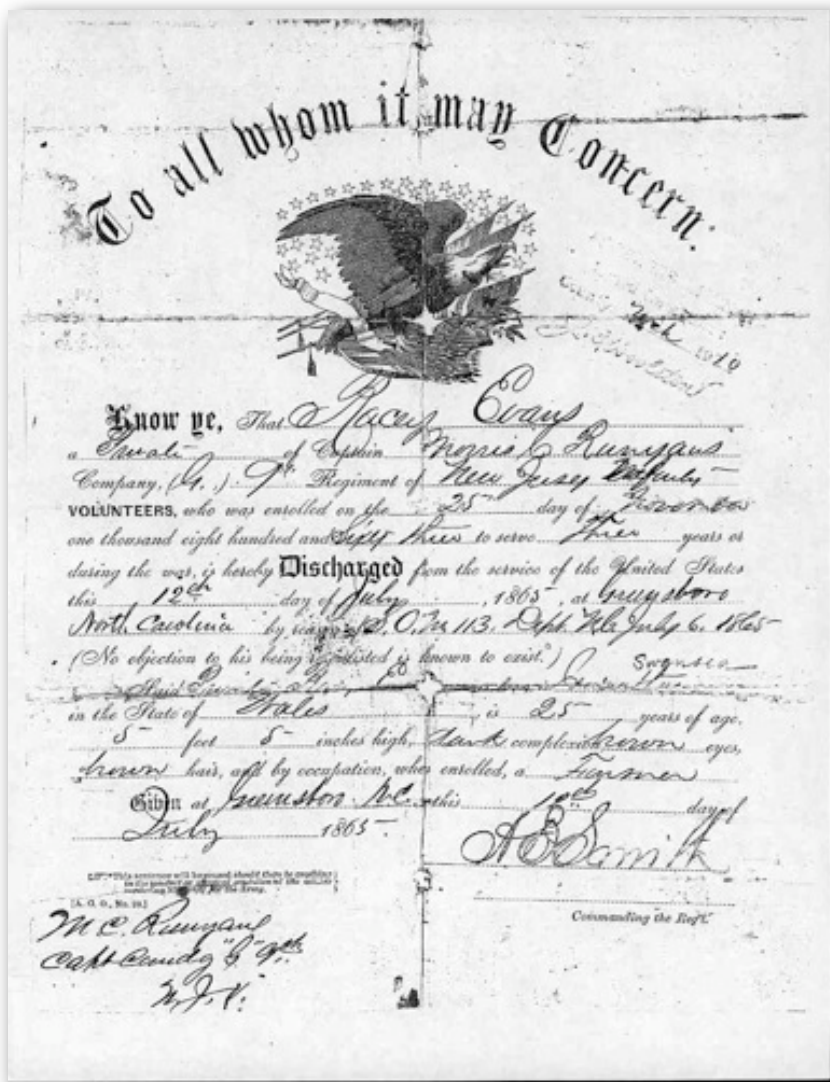 To all whom it may Concern.
Know ye, That Racey Evans
a Private of Captain Morris C. Runyans
Company, (G.) 9th Regiment of New Jersey Infantry
VOLUNTEERS, who was enrolled on the 25 day of November
one thousand eight hundred and sixty three to serve Three years or
during the war, is hereby Discharged from the service of the United States
this 12th day of July, 1865, at Greensboro
North Carolina by reason of S. O. No 113. Dept. N.C. July 6. 1865
(No objection to his being re-enlisted is known to exist.*)
Swansea
Said
in the State of Wales, is 25 years of age,
5 feet 5 inches high, dark complexion, brown eyes,
brown hair, and by occupation, when enrolled, a Farmer
Given at Greensboro N.C. this 12th day of
July 1865.
A B Smith
[A. G. O., No. 99.]
Commanding the Reg't.
M C. Runyans
Capt Comdg "G" 9th
N. J. V.